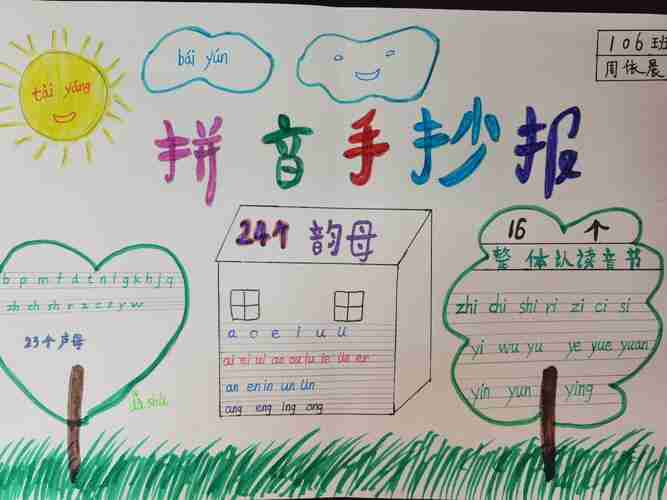 106班
周依晨
tài yáng
bái yún
拼音手抄报
b p m f d t n l g k h j q
zh ch sh r z c s y w
23个声母
shù
24个韵母
a o e i u ü
ai ei ui ao ou iu ie üe er
an en in un ün
ang eng ing ong
16个
整体认读音节
zhi chi shi ri zi ci si
yi wu yu ye yue yuan
yin yun ying